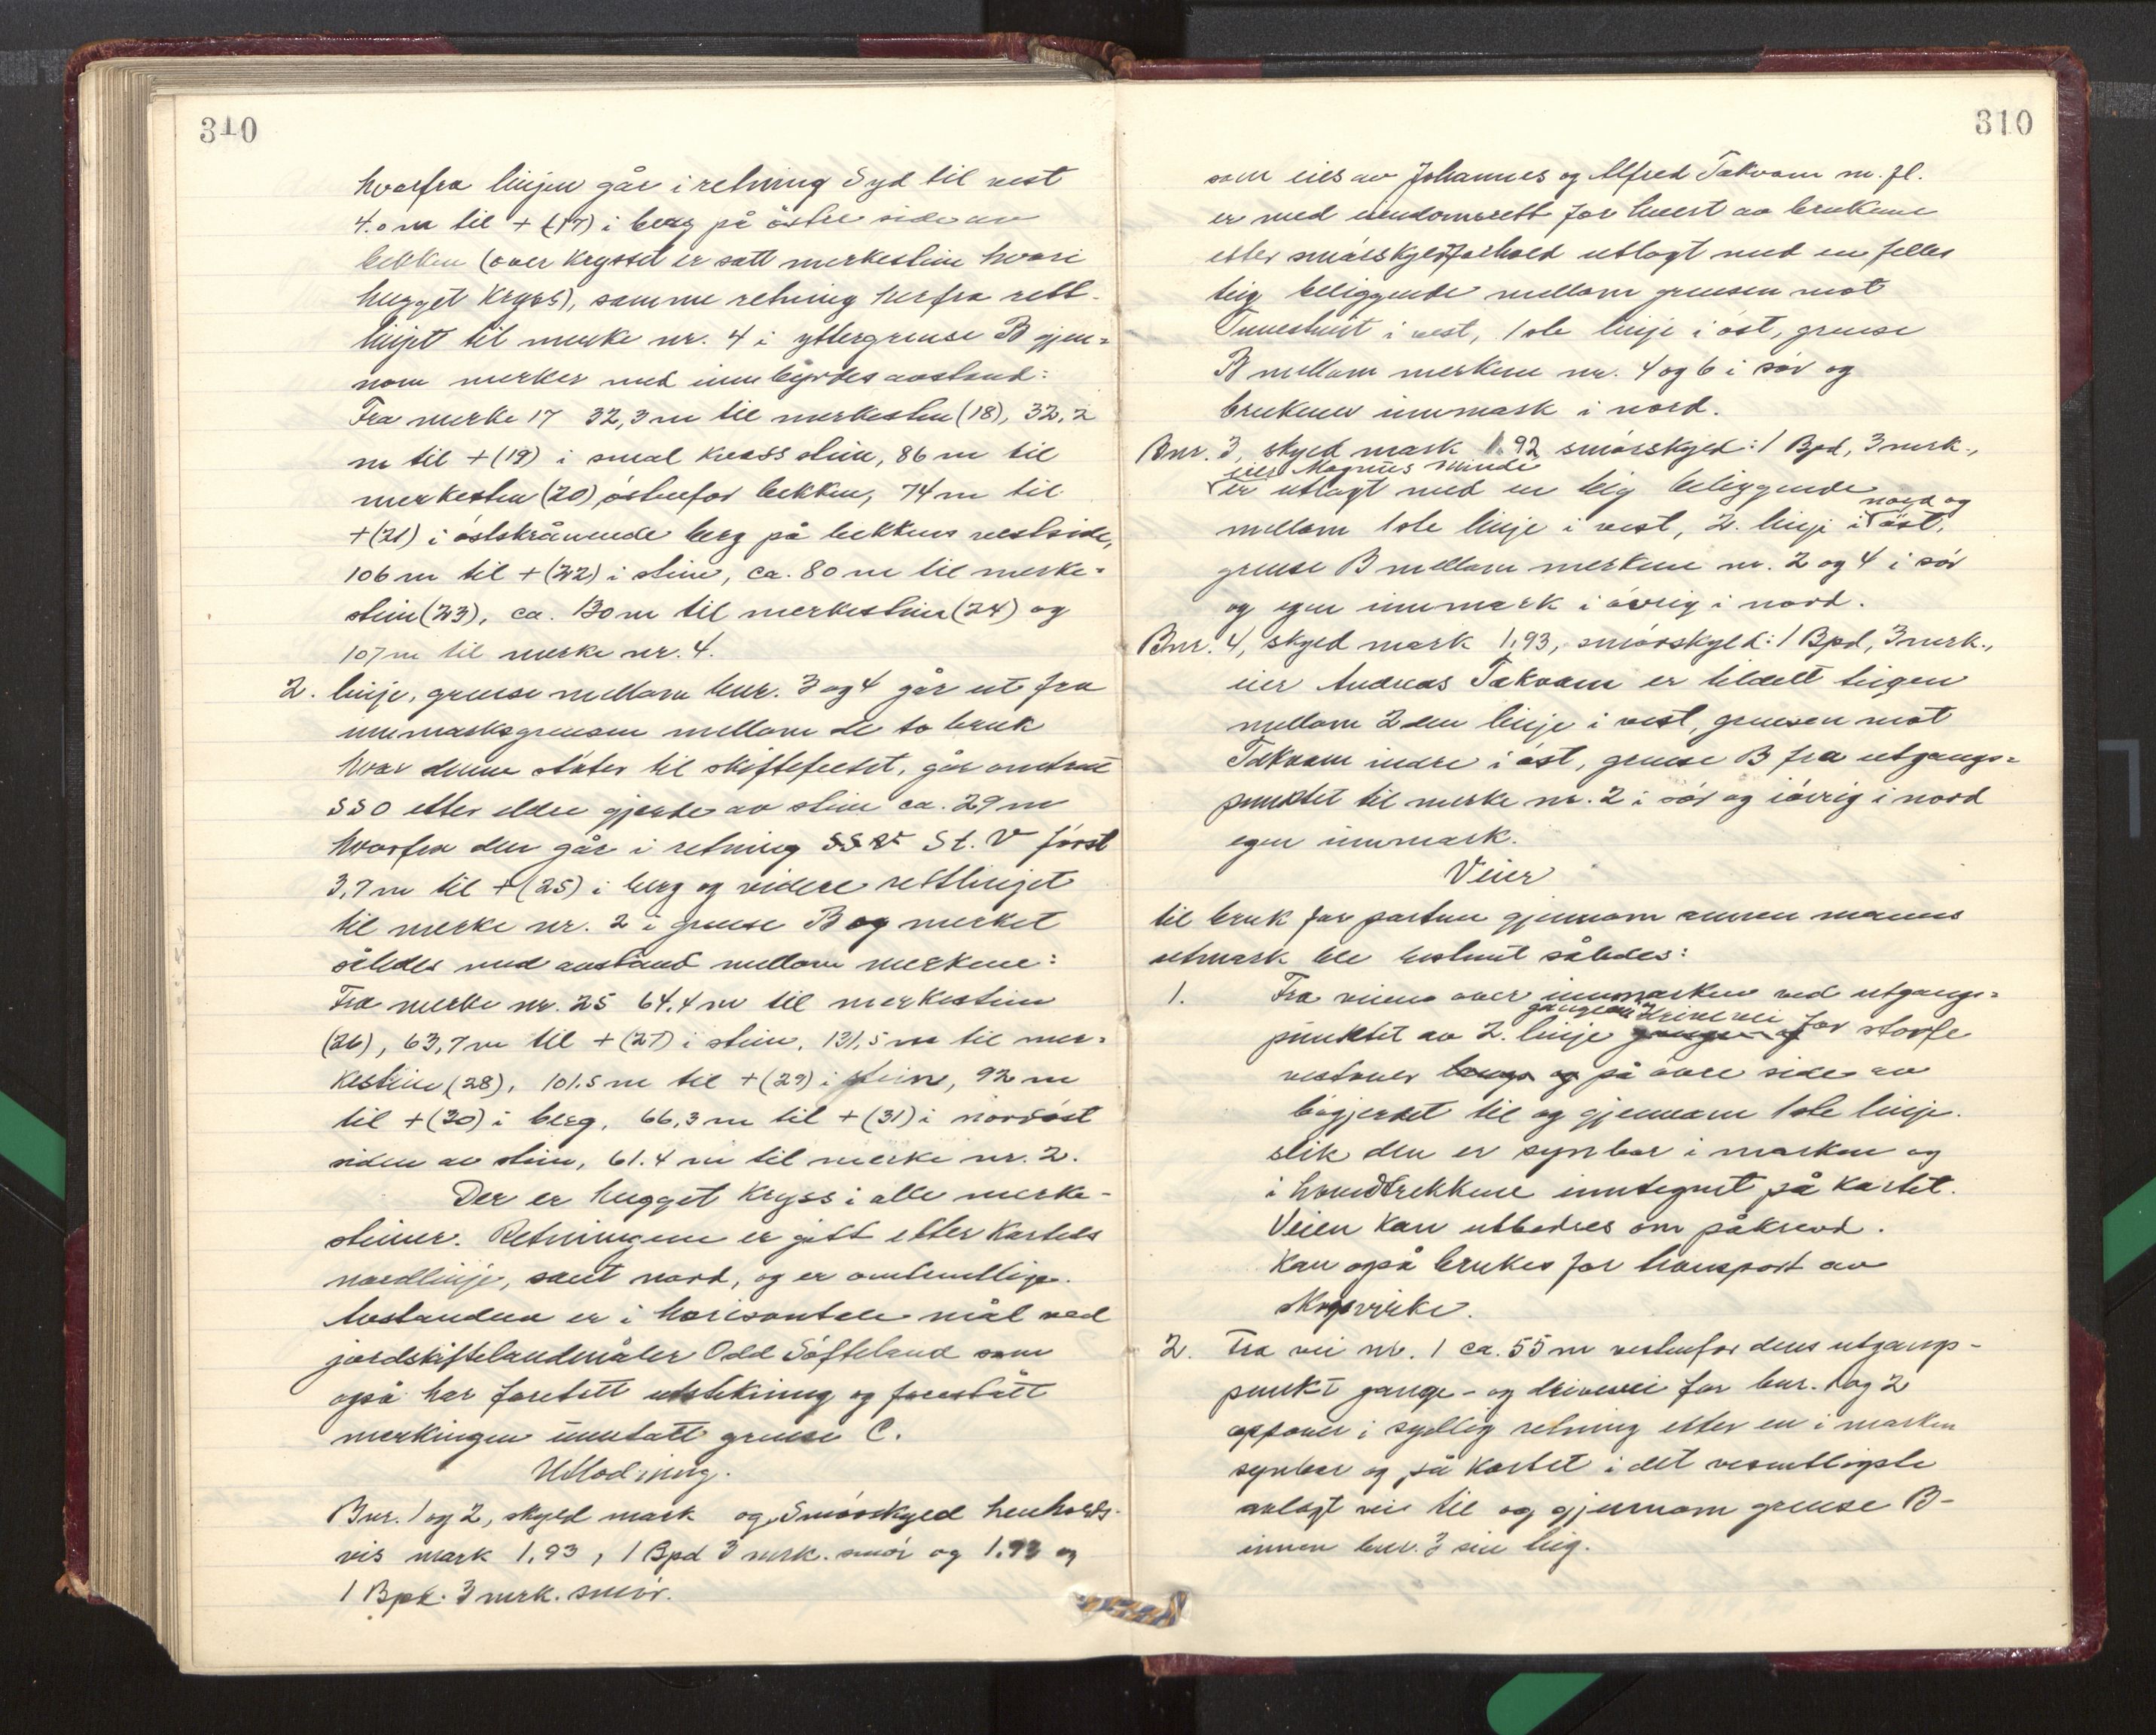 310
hvorfra linjen går i retning Syd til vest
4.0 m til + (17) i berg på östre side av
bekken (over krysset er satt merkestein hvori
hugget kryss), samme retning herfra rett-
linjet til merke nr. 4 i yttergrense B gjen=
nom merker med innbyrdes avstand:
Fra merke 17 32,3 m til merkestein (18), 32,2
m til + (19) i smal kvass stein, 86 m til
merkestein (20) östenfor bekken, 74 m til
+ (21) i östskrånende berg på bekkens vestside,
106 m til + (22) i stein, ca. 80 m til merke=
stein (23), ca. 130 m til merkestein (24) og
107 m til merke nr. 4.
2. linje, grense mellom bnr. 3 og 4 går ut fra
innmarksgrensen mellom de to bruk
hvor denne stöter til skiftefeltet, går omtrent
SSO etter eldre gjerde av stein ca. 29 m
hvorfra den går i retning SSV S t. V först
3,7 m til + (25) i berg og videre rettlinjet
til merke nr. 2 i grense B og merket
således med avstand mellom merkene:
Fra merke nr. 25 64.4 m til merkestein
(26), 63,7 m til + (27) i stein, 131,5 m til mer=
kestein (28), 101.5 m til + (29) i stein, 92 m
til + (30) i berg, 66,3 m til + (31) i nordöst
siden av stein, 61.4 m til merke nr. 2.
Der er hugget kryss i alle merke-
steiner. Retningene er gitt etter kartets
nordlinje, sant nord, og er omtrentlige.
Avstanden er i horisontale mål ved
jordskiftelandmåler Odd Söfteland som
også har foretatt utstikning og forestått
merkingen unntatt grense C.
Utlodning.
Bnr. 1 og 2, skyld mark og Smörskyld henholds-
vis mark 1,93, 1 Bpd 3 merk. smör og 1.93 og
1 Bpd. 3 merk. smör.
310
som eies av Johannes og Alfred Takvam m. fl.
er med eiendomsrett for hvert av brukene
etter smörskyldforhold utlagt med en felles
teig beliggende mellom grensen mot
Tunestveit i vest, 1ste linje i öst, grense
B mellom merkene nr. 4 og 6 i sör og
brukenes innmark i nord.
Bnr. 3, skyld mark 1.92 smörskyld: 1 Bpd, 3 merk.,
eier Magnus Minde
er utlagt med en teig beliggende
mellom 1ste linje i vest, 2. linje i nord og öst,
grense B mellom merkene nr. 2 og 4 i sör
og egen innmark i övrig i nord.
Bnr. 4, skyld mark 1,93, smörskyld: 1 Bpd, 3 merk.,
eier Andreas Takvam er tildelt teigen
mellom 2den linje i vest, grensen mot
Takvam indre i öst, grense B fra utgangs=
punktet til merke nr. 2 i sör og iövrig i nord
egen innmark.
Veier
til bruk for partene gjennom annen manns
utmark ble bestemt således:
1. Fra veien over innmarken ved utgangs=
punktet av 2. linje gange og drivevei for storfe
vestover på övre side av
bögjerdet til og gjennom 1ste linje.
slik den er synbar i marken og
i hovedtrekkene inntegnet på kartet.
Veien kan utbedres om påkrevd.
Kan også brukes for transport av
skogsvirke.
2. Fra vei nr. 1 ca. 55 m vestenfor dens utgangs-
punkt gange- og drivevei for bnr. 1 og 2
oppover i sydlig retning etter en i marken
synbar og på kartet i det vesentligste
avlagt vei til og gjennom grense B-
innen bnr. 3 sin teig.